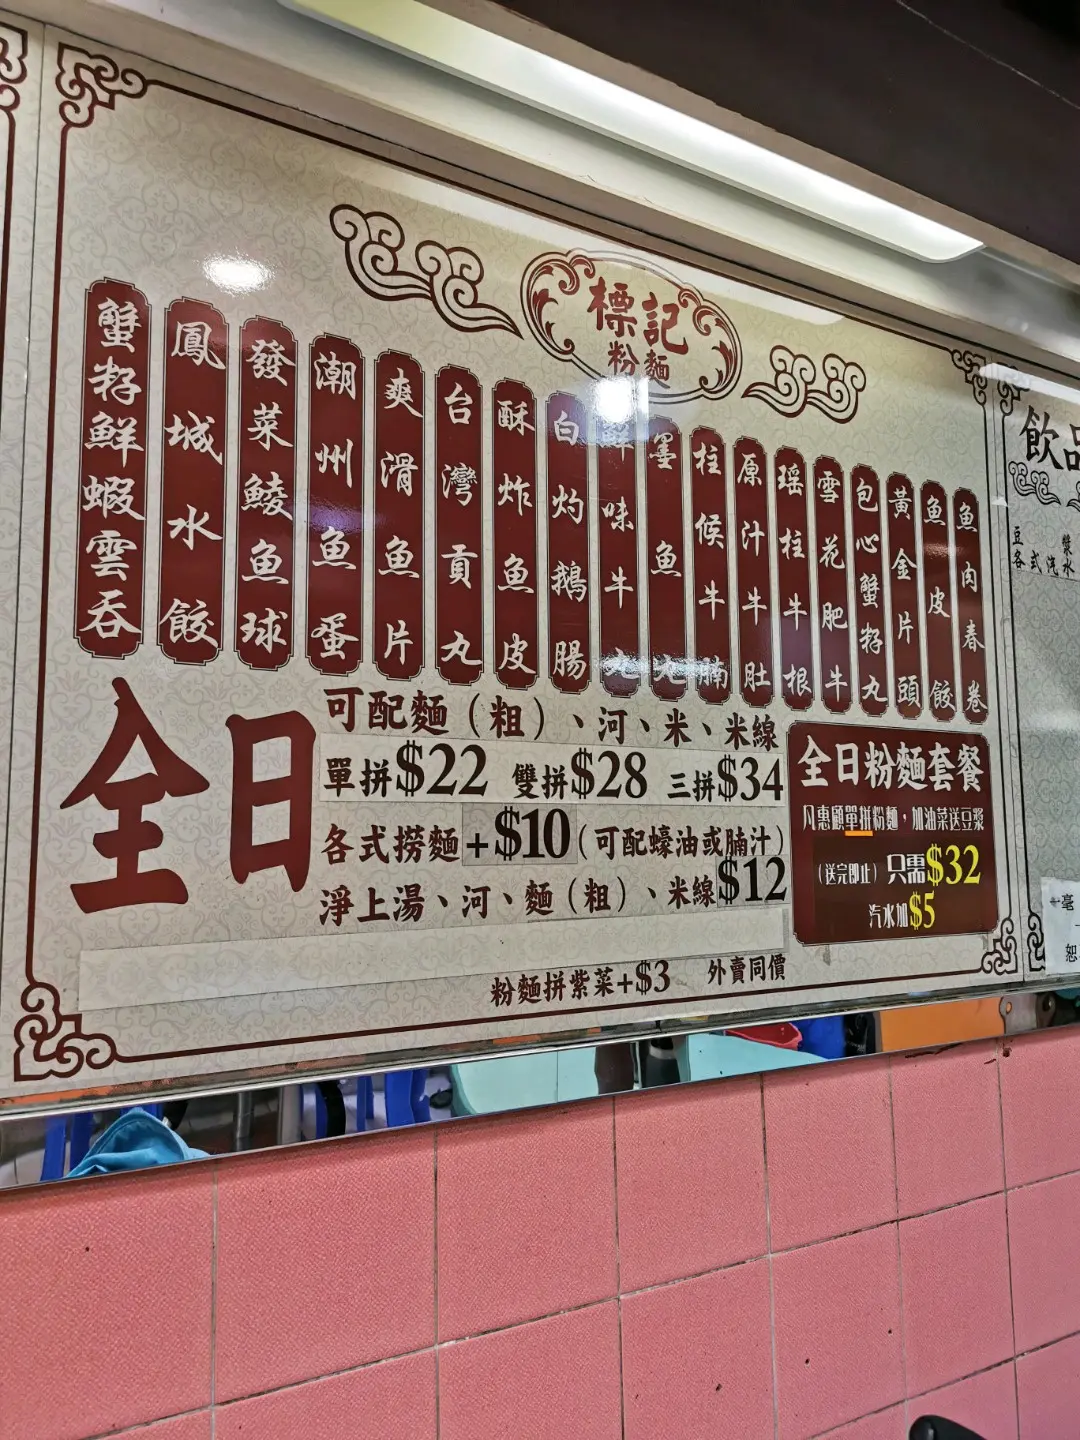 標記
粉麵
蟹籽鮮蝦雲吞
鳳城水餃
發菜鯪魚球
潮州魚蛋
爽滑魚片
台灣貢丸
酥炸魚皮
白灼鵝腸
鮮味牛丸
墨魚丸
柱候牛腩
原汁牛肚
瑶柱牛根
雪花肥牛
包心蟹籽丸
黃金片頭
魚皮餃
魚肉春卷
全日
可配麵（粗）、河、米、米線
單拼$22 雙拼$28 三拼$34
各式撈麵+$10（可配蠔油或腩汁）
淨上湯、河、麵（粗）、米線$12
粉麵拼紫菜+$3 外賣同價
全日粉麵套餐
凡惠顧單拼粉麵，加油菜送豆漿
（送完即止）只需$32
汽水加$5
飲品
豆漿
各式汽水